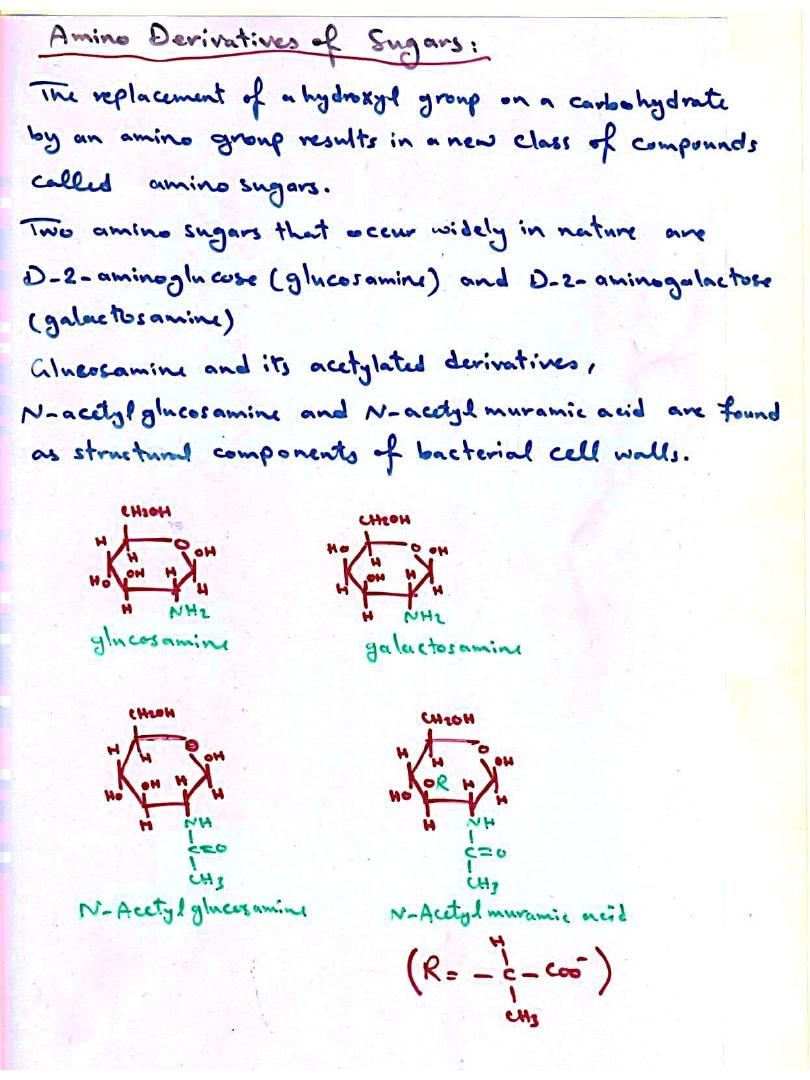 Amino Derivatives of Sugars:
The replacement of a hydroxyl group on a carbohydrate
by an amino group results in a new class of compounds
called amino sugars.
Two amino sugars that occur widely in nature are
D-2-aminoglucose (glucosamine) and D-2-aminogalactose
(galactosamine)
Glucosamine and its acetylated derivatives,
N-acetylglucosamine and N-acetyl muramic acid are found
as structural components of bacterial cell walls.
CH2OH CH2OH
H O OH HO O OH
H H
HO OH H H H OH H H
H NH2 H NH2
glucosamine galactosamine
CH2OH CH2OH
H O OH H O OH
H H
HO OH H H HO OR H H
H NH H NH
C=O C=O
CH3 CH3
N-Acetylglucosamine N-Acetylmuramic acid
H
(R= -C-COO-)
CH3